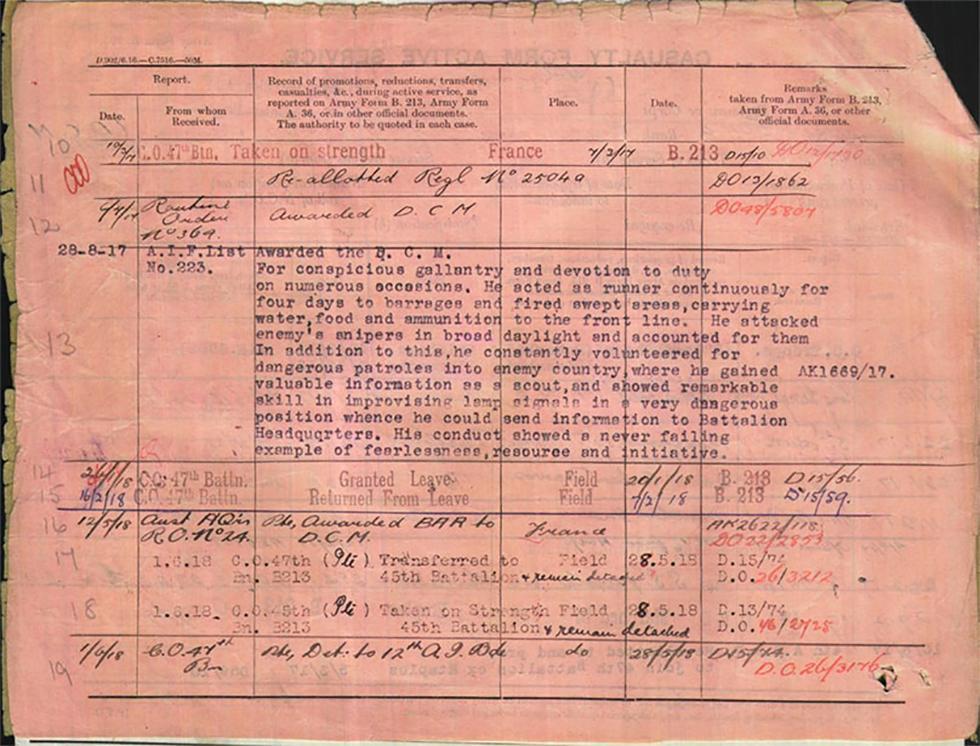 CASUALTY FORM ACTIVE SERVICE.
Report.
Record of promotions, reductions, transfers,
casualties, &c., during active service, as
reported on Army Form B. 213, Army Form
A. 36, or in other official documents.
The authority to be quoted in each case.
Place.
Date.
Remarks
taken from Army Form B. 213,
Army Form A. 36, or other
official documents.
Date.
From whom
Received.
10
C.O. 47th Btn. Taken on strength France 7/2/17 B.213 D15/10
11
Re-allotted Regl No 2504a DO13/1862
12
Routine Awarded D.C.M. DO48/5804
Orders
No 369.
28-8-17 A.I.F.List Awarded the D. C. M.
No.223. For conspicious gallantry and devotion to duty
on numerous occasions. He acted as runner continuously for
four days to barrages and fired swept areas,carrying
water,food and ammunition to the front line. He attacked
13
enemy's snipers in broad daylight and accounted for them
In addition to this,he constantly volunteered for
dangerous patroles into enemy country,where he gained AK1669/17.
valuable information as a scout,and showed remarkable
skill in improvising lamp signals in a very dangerous
position whence he could send information to Battalion
Headquqrters. His conduct showed a never failing
example of fearlessness,resource and initiative.
14
26/1/18 C.O. 47th Battn. Granted Leave Field 20/1/18 B. 213 D15/56.
15
16/2/18 C.O. 47th Battn. Returned From Leave Field 7/2/18 B. 213 D15/59.
16
12/5/18 Aust HQrs Pte, Awarded BAR to France AK2622/118
R.O. No 24. D.C.M. DO22/2853
17
1.6.18 C.O.47th (Pte) Transferred to Field 28.5.18 D.15/74
Bn. B213 45th Battalion & remain detached D.O. 26/3212
18
1.6.18. C.O.45th (Pte) Taken on Strength Field 28.5.18 D.13/74
Bn. B213 45th Battalion & remain detached D.O. 46/2725
19
1/6/18 C.O. 47th Pte, Det. to 12th A.I. Bde do 28/5/18 D15/74.
Bn D.O.26/3176